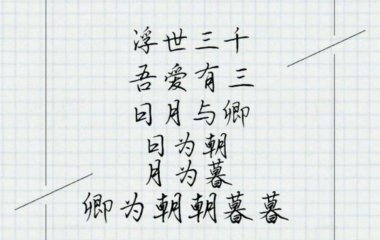 浮世三千
吾爱有三
日月与卿
日为朝
月为暮
卿为朝朝暮暮